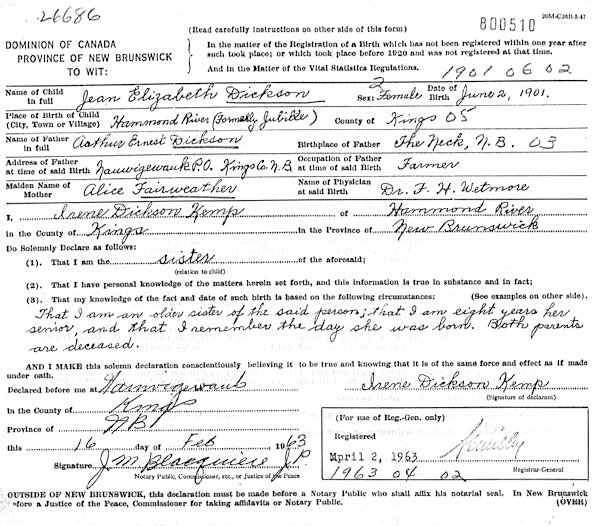 26686
(Read carefully instructions on other side before starting)
800510
20M-C26B-5-47
DOMINION OF CANADA
PROVINCE OF NEW BRUNSWICK
TO WIT:
In the matter of the Registration of a Birth which has not been registered within one year after
such took place; or which took place before 1920 and was not registered at that time.
And in the Matter of the Vital Statistics Regulations.
1901 06 02
Name of Child in full Jean Elizabeth Dickson Sex: Female 2 Date of Birth June 2, 1901.
Place of Birth of Child (City, Town or Village) Hammond River (Formerly Jubilee) County of Kings 05
Name of Father in full Arthur Ernest Dickson Birthplace of Father The Neck, N.B. 03
Address of Father at time of said Birth Nauwigewauk P.O. Kings Co. N.B. Occupation of Father at time of said Birth Farmer
Maiden Name of Mother Alice Fairweather Name of Physician at said Birth Dr. F. H. Wetmore
I, Irene Dickson Kemp of Hammond River
in the County of Kings in the Province of New Brunswick
Do Solemnly Declare as follows:
(1). That I am the sister of the aforesaid;
(relation to child)
(2). That I have personal knowledge of the matters herein set forth, and this information is true in substance and in fact;
(3). That my knowledge of the fact and date of such birth is based on the following circumstances: (See examples on other side).
That I am an older sister of the said person; that I am eight years her
senior, and that I remember the day she was born. Both parents
are deceased.
AND I MAKE this solemn declaration conscientiously believing it to be true and knowing that it is of the same force and effect as if made
under oath.
Declared before me at Nauwigewauk
Irene Dickson Kemp
(Signature of declarant)
In the County of Kings
Province of NB
this 16 day of Feb 1963
Signature J M Blacquiere J.P.
Notary Public, Commissioner, etc., or Justice of the Peace
(For use of Reg.-Gen. only)
Registered
April 2, 1963
1963 04 02
Registrar-General
OUTSIDE OF NEW BRUNSWICK, this declaration must be made before a Notary Public who shall affix his notarial seal. In New Brunswick
before a Justice of the Peace, Commissioner for taking affidavits or Notary Public. (OVER)